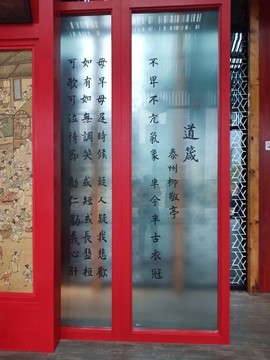 道箴
泰州柳敬亭
不卑不亢氣象 半今半古衣冠
毋早毋遲時候 疑人疑我悲歡
如有如無調笑 或短或長盤桓
可歌可泣情節 勸仁勸義心肝